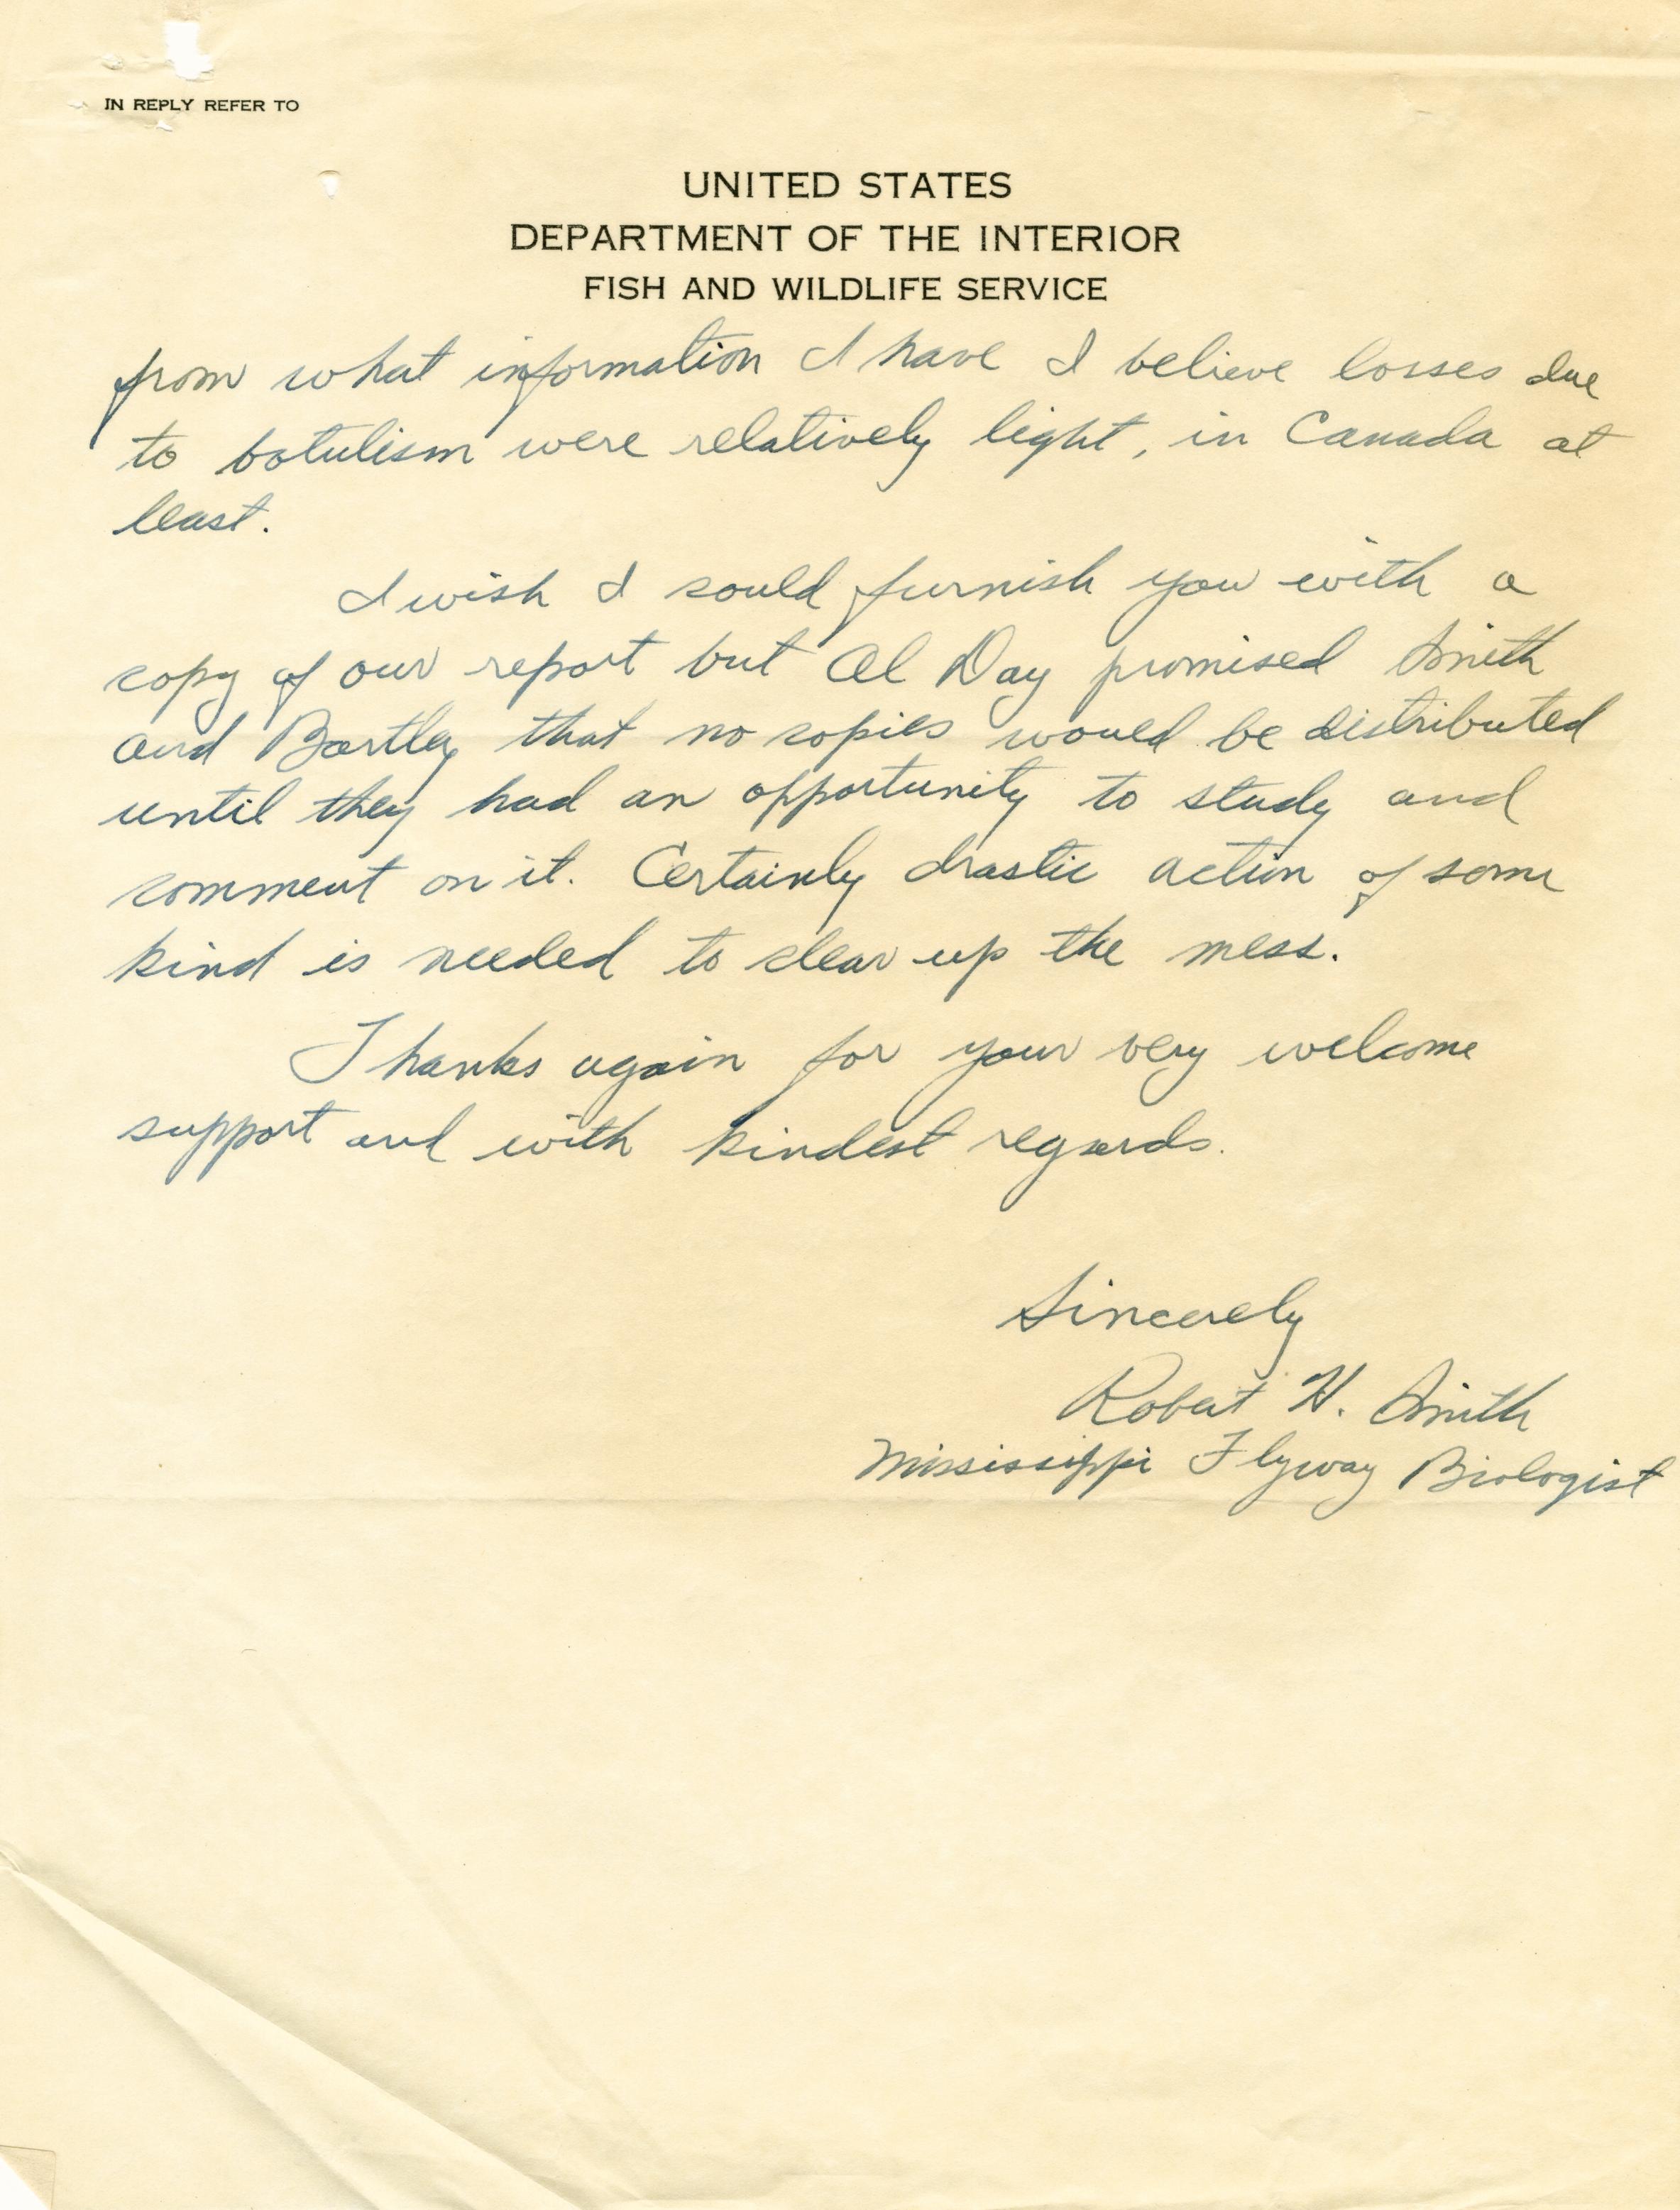 IN REPLY REFER TO
UNITED STATES
DEPARTMENT OF THE INTERIOR
FISH AND WILDLIFE SERVICE
from what information I have I believe losses due
to botulism were relatively light, in Canada at
least.
I wish I could furnish you with a
copy of our report but Al Day promised Smith
and Bartley that no copies would be distributed
until they had an opportunity to study and
comment on it. Certainly drastic action of some
kind is needed to clear up the mess.
Thanks again for your very welcome
support and with kindest regards.
Sincerely
Robert H. Smith
Mississippi Flyway Biologist